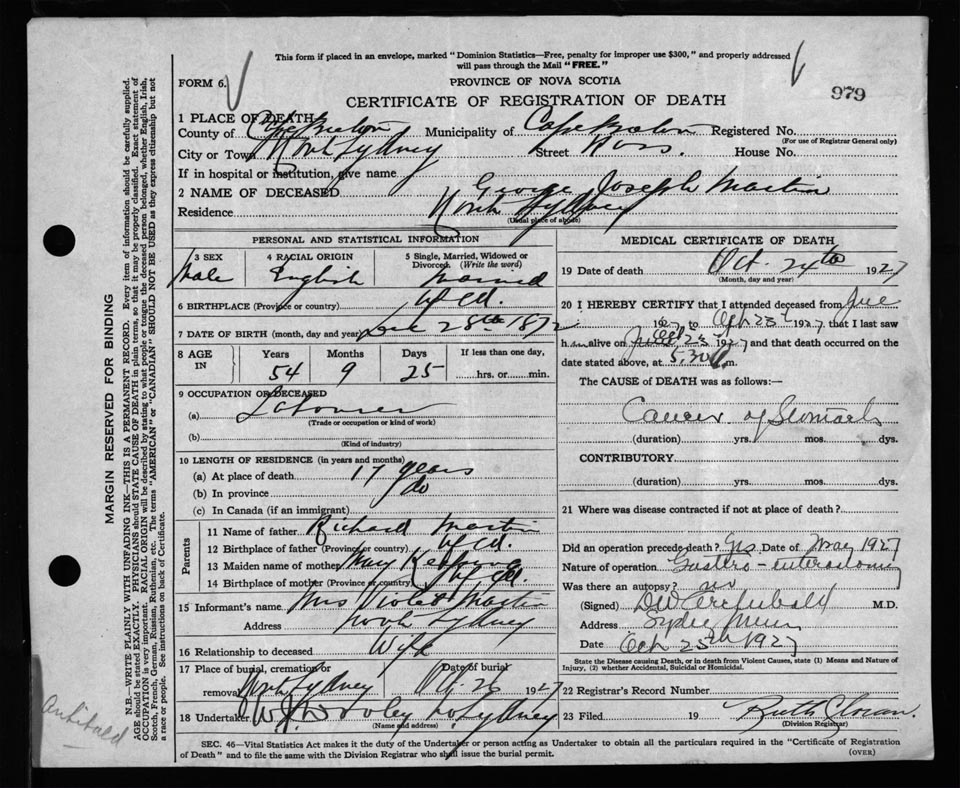 This form if placed in an envelope, marked "Dominion Statistics—Free, penalty for improper use $300," and properly addressed
will pass through the Mail "FREE."
FORM 6.
PROVINCE OF NOVA SCOTIA
979
CERTIFICATE OF REGISTRATION OF DEATH
1 PLACE OF DEATH
County of Cape Breton Municipality of Cape Breton Registered No.
(For use of Registrar General only)
City or Town North Sydney Street Ross. House No.
If in hospital or institution, give name
2 NAME OF DECEASED George Joseph Martin
Residence North Sydney
(Usual place of abode)
PERSONAL AND STATISTICAL INFORMATION
3 SEX Male
4 RACIAL ORIGIN English
5 Single, Married, Widowed or Divorced. (Write the word) Married
6 BIRTHPLACE (Province or country) Nfld.
7 DATE OF BIRTH (month, day and year) 28th 1872
8 AGE IN Years Months Days If less than one day,
54 9 25 hrs. or min.
9 OCCUPATION OF DECEASED
(a) Labourer
(Trade or occupation or kind of work)
(b)
(Kind of industry)
10 LENGTH OF RESIDENCE (in years and months)
(a) At place of death 17 years
(b) In province do
(c) In Canada (if an immigrant)
Parents
11 Name of father Richard Martin
12 Birthplace of father (Province or country) Nfld.
13 Maiden name of mother Mary
14 Birthplace of mother (Province or country) Nfld.
15 Informant's name Mrs Violet Martin
Address North Sydney
16 Relationship to deceased Wife
17 Place of burial, cremation or Date of burial
removal North Sydney Oct. 26 1927
18 Undertaker W. J. Dooley No. Sydney
(Name and address)
MEDICAL CERTIFICATE OF DEATH
19 Date of death Oct. 24th 1927
(Month, day and year)
20 I HEREBY CERTIFY that I attended deceased from
1927 to Oct 23rd 1927 that I last saw
him alive on Oct 23 1927 and that death occurred on the
date stated above, at 5.30 A m.
The CAUSE OF DEATH was as follows:—
Cancer of Stomach
(duration) yrs. mos. dys.
CONTRIBUTORY
(duration) yrs. mos. dys.
21 Where was disease contracted if not at place of death?
Did an operation precede death? Yes Date of May 1927
Nature of operation Gastro-enterostomy
Was there an autopsy? no
(Signed) DW Archibald M.D.
Address Sydney Mines
Date Oct 25th 1927
State the Disease causing Death, or in death from Violent Causes, state (1) Means and Nature of
Injury, (2) whether Accidental, Suicidal or Homicidal.
22 Registrar's Record Number
23 Filed 19 Ruth Sloran.
(Division Registrar)
SEC. 46—Vital Statistics Act makes it the duty of the Undertaker or person acting as Undertaker to obtain all the particulars required in the "Certificate of Registration
of Death" and to file the same with the Division Registrar who shall issue the burial permit.
(OVER)
MARGIN RESERVED FOR BINDING
N.B.—WRITE PLAINLY WITH UNFADING INK—THIS IS A PERMANENT RECORD. Every item of information should be carefully supplied.
AGE should be stated EXACTLY. PHYSICIANS should STATE CAUSE OF DEATH in plain terms, so that it may be properly classified. Exact statement of
OCCUPATION is very important. RACIAL ORIGIN will be described by stating to what people or tongue the deceased person belonged, whether English, Irish,
Scotch, French, German, Russian, Ruthenian, etc. The terms "AMERICAN" or "CANADIAN" SHOULD NOT BE USED as they express citizenship but not
a race or people. See instructions on back of Certificate.
Archibald